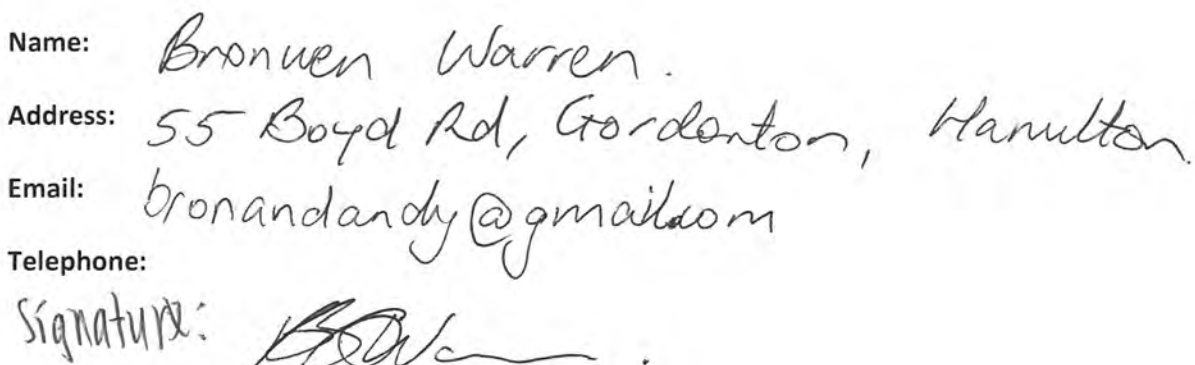 Name: Bronwen Warren.
Address: 55 Boyd Rd, Gordonton, Hamilton.
Email: bronandandy@gmail.com
Telephone:
Signature: